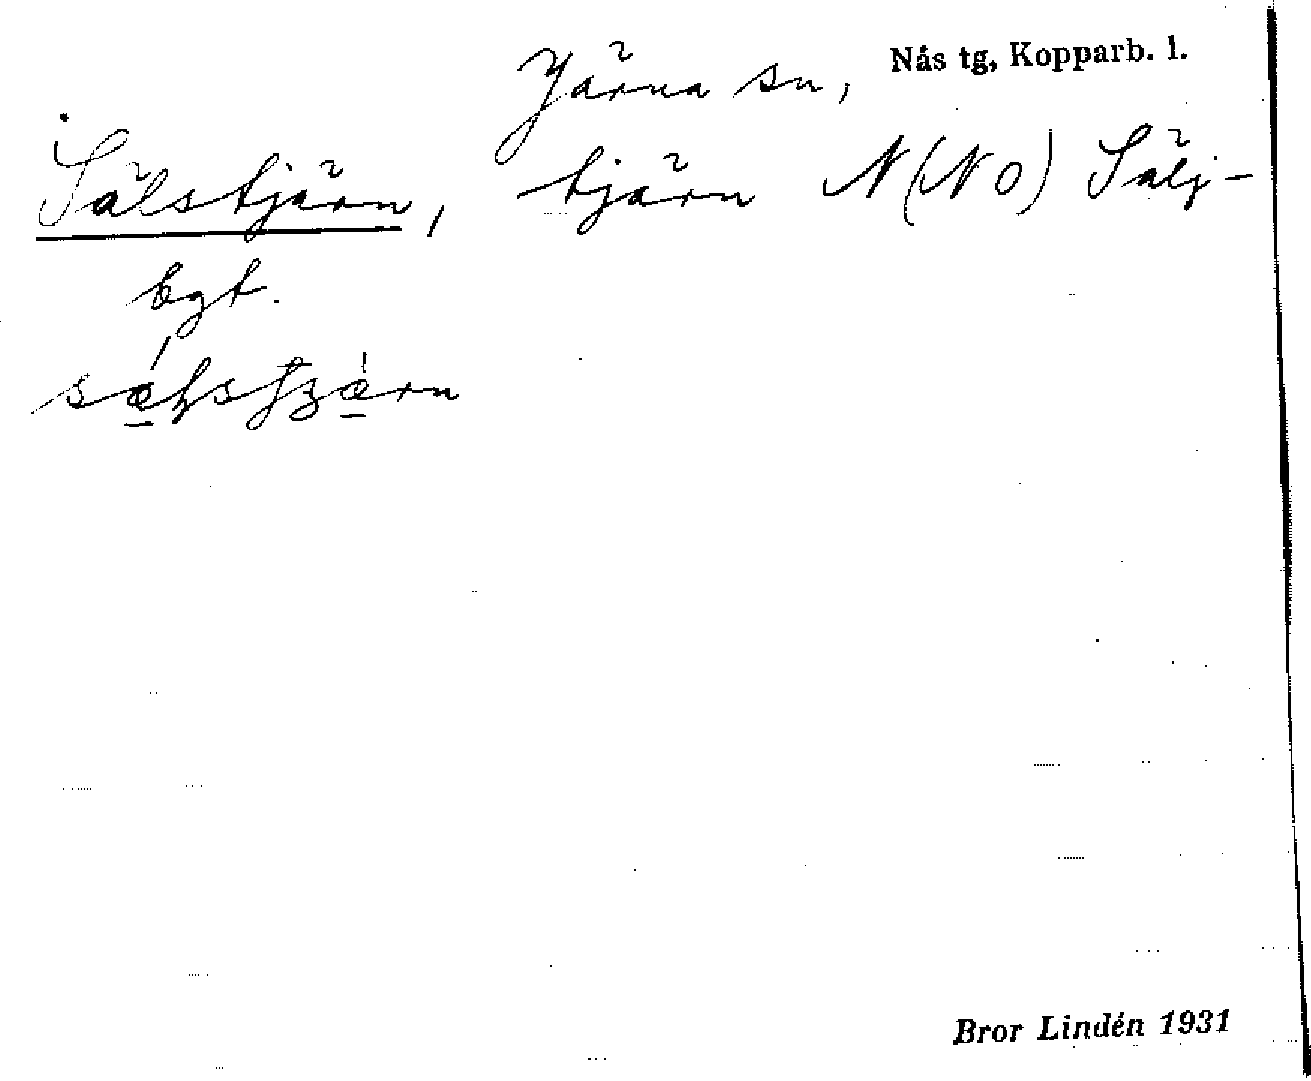 Järna sn, Nås tg, Kopparb. l.
Sälstjärn, tjärn N(NO) Sälj-
bgt.
Bror Lindén 1931